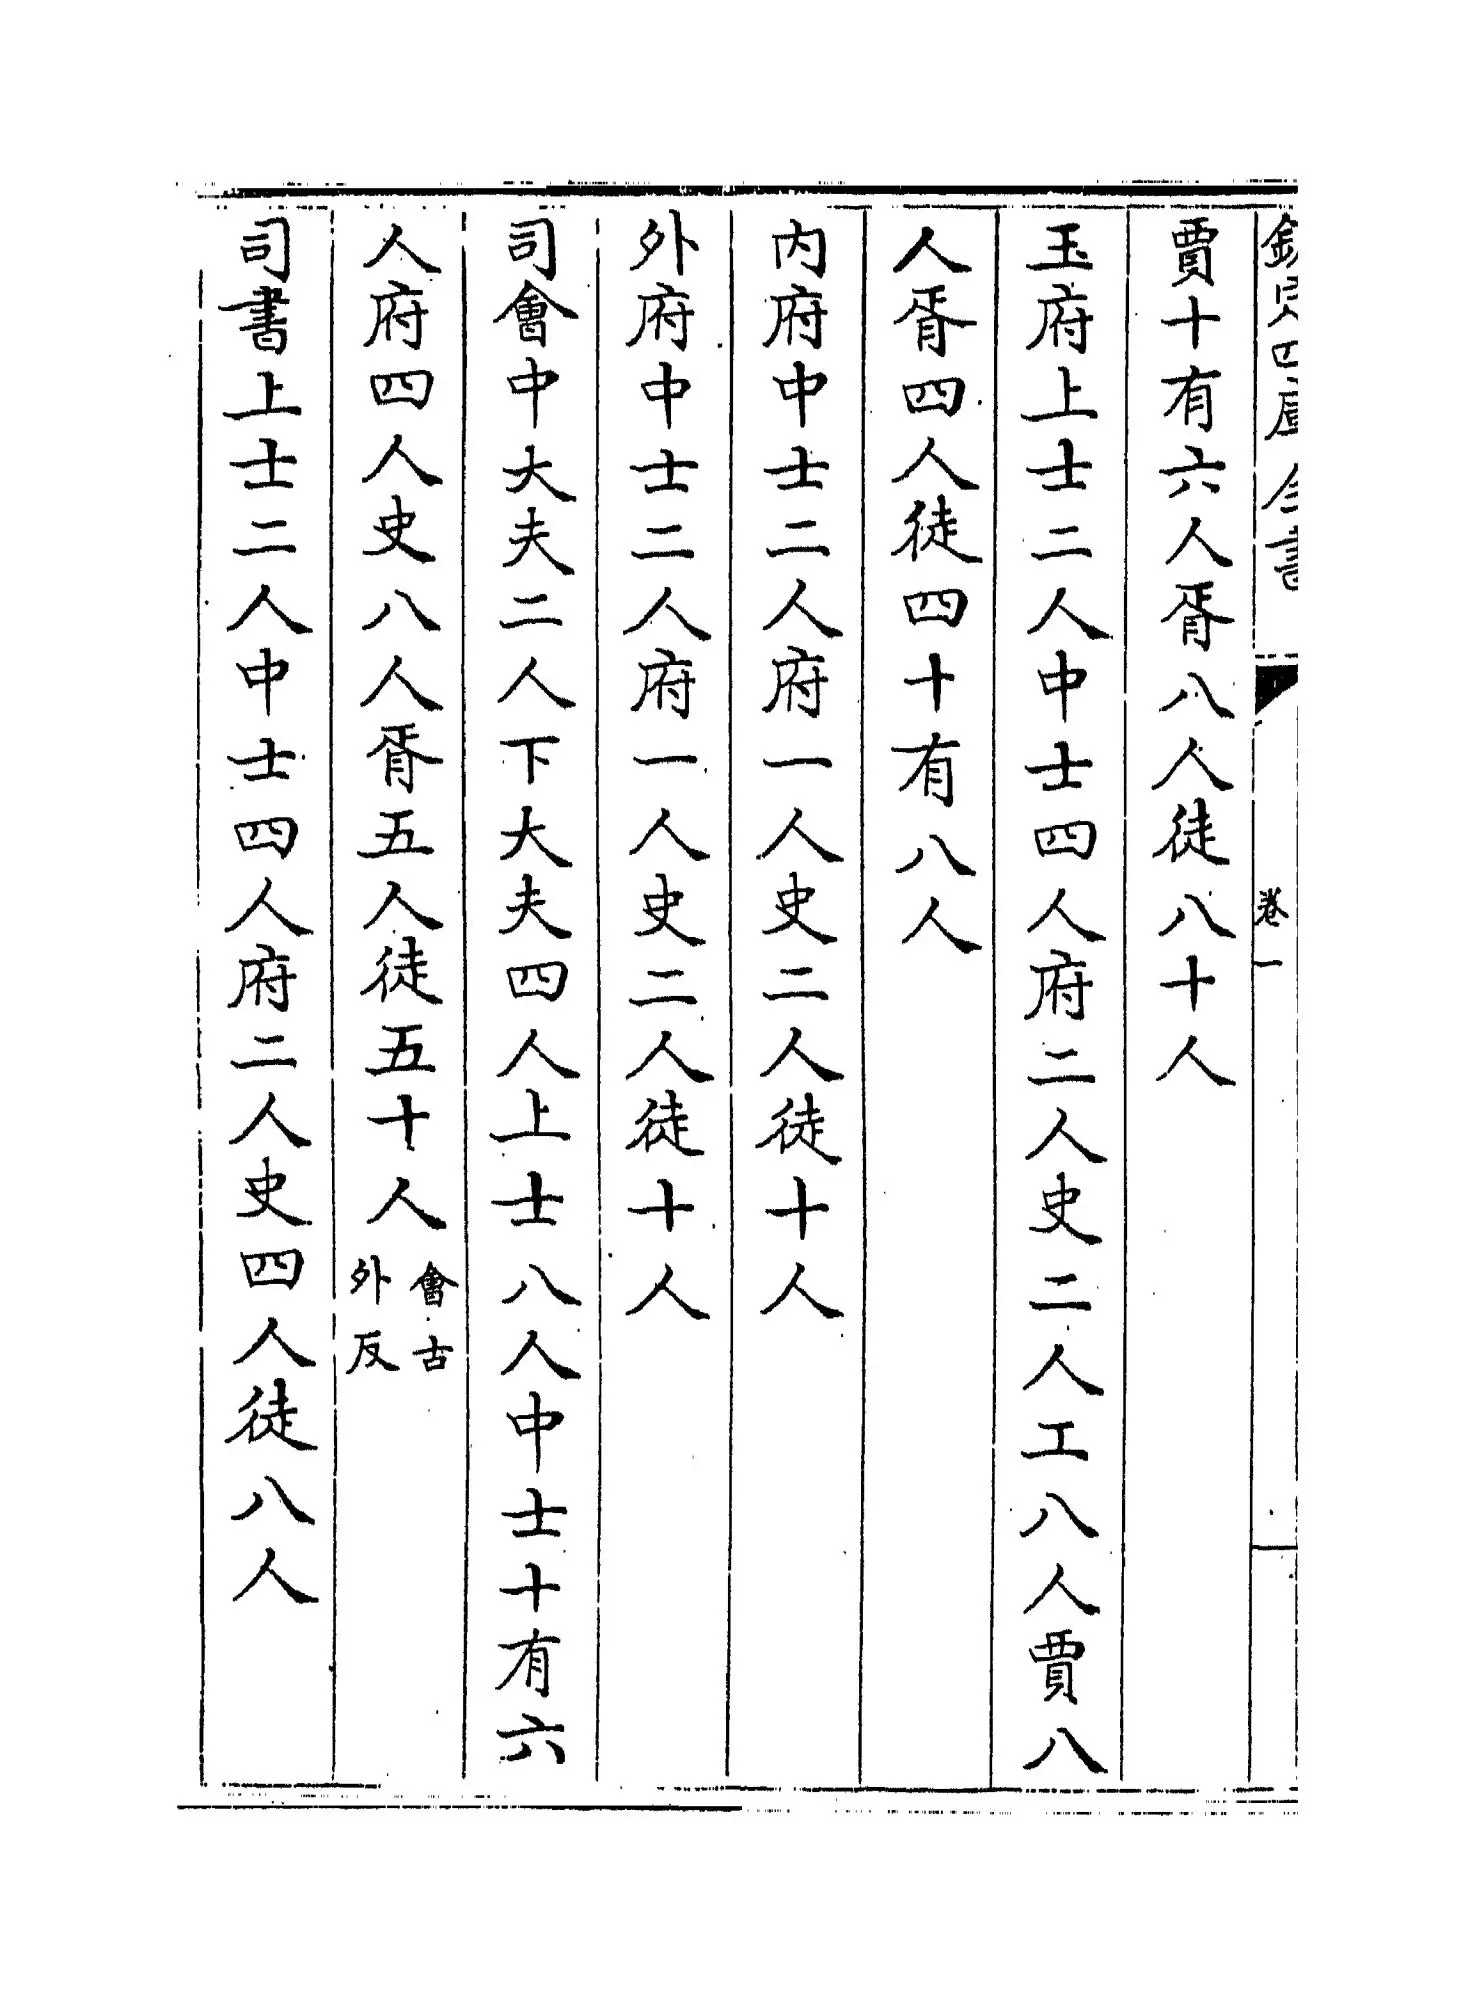 欽定四庫全書
卷一
賈十有六人胥八人徒八十人
玉府上士二人中士四人府二人史二人工八人賈八
人胥四人徒四十有八人
內府中士二人府一人史二人徒十人
外府中士二人府一人史二人徒十人
司會中大夫二人下大夫四人上士八人中士十有六
人府四人史八人胥五人徒五十人會古
外反
司書上士二人中士四人府二人史四人徒八人